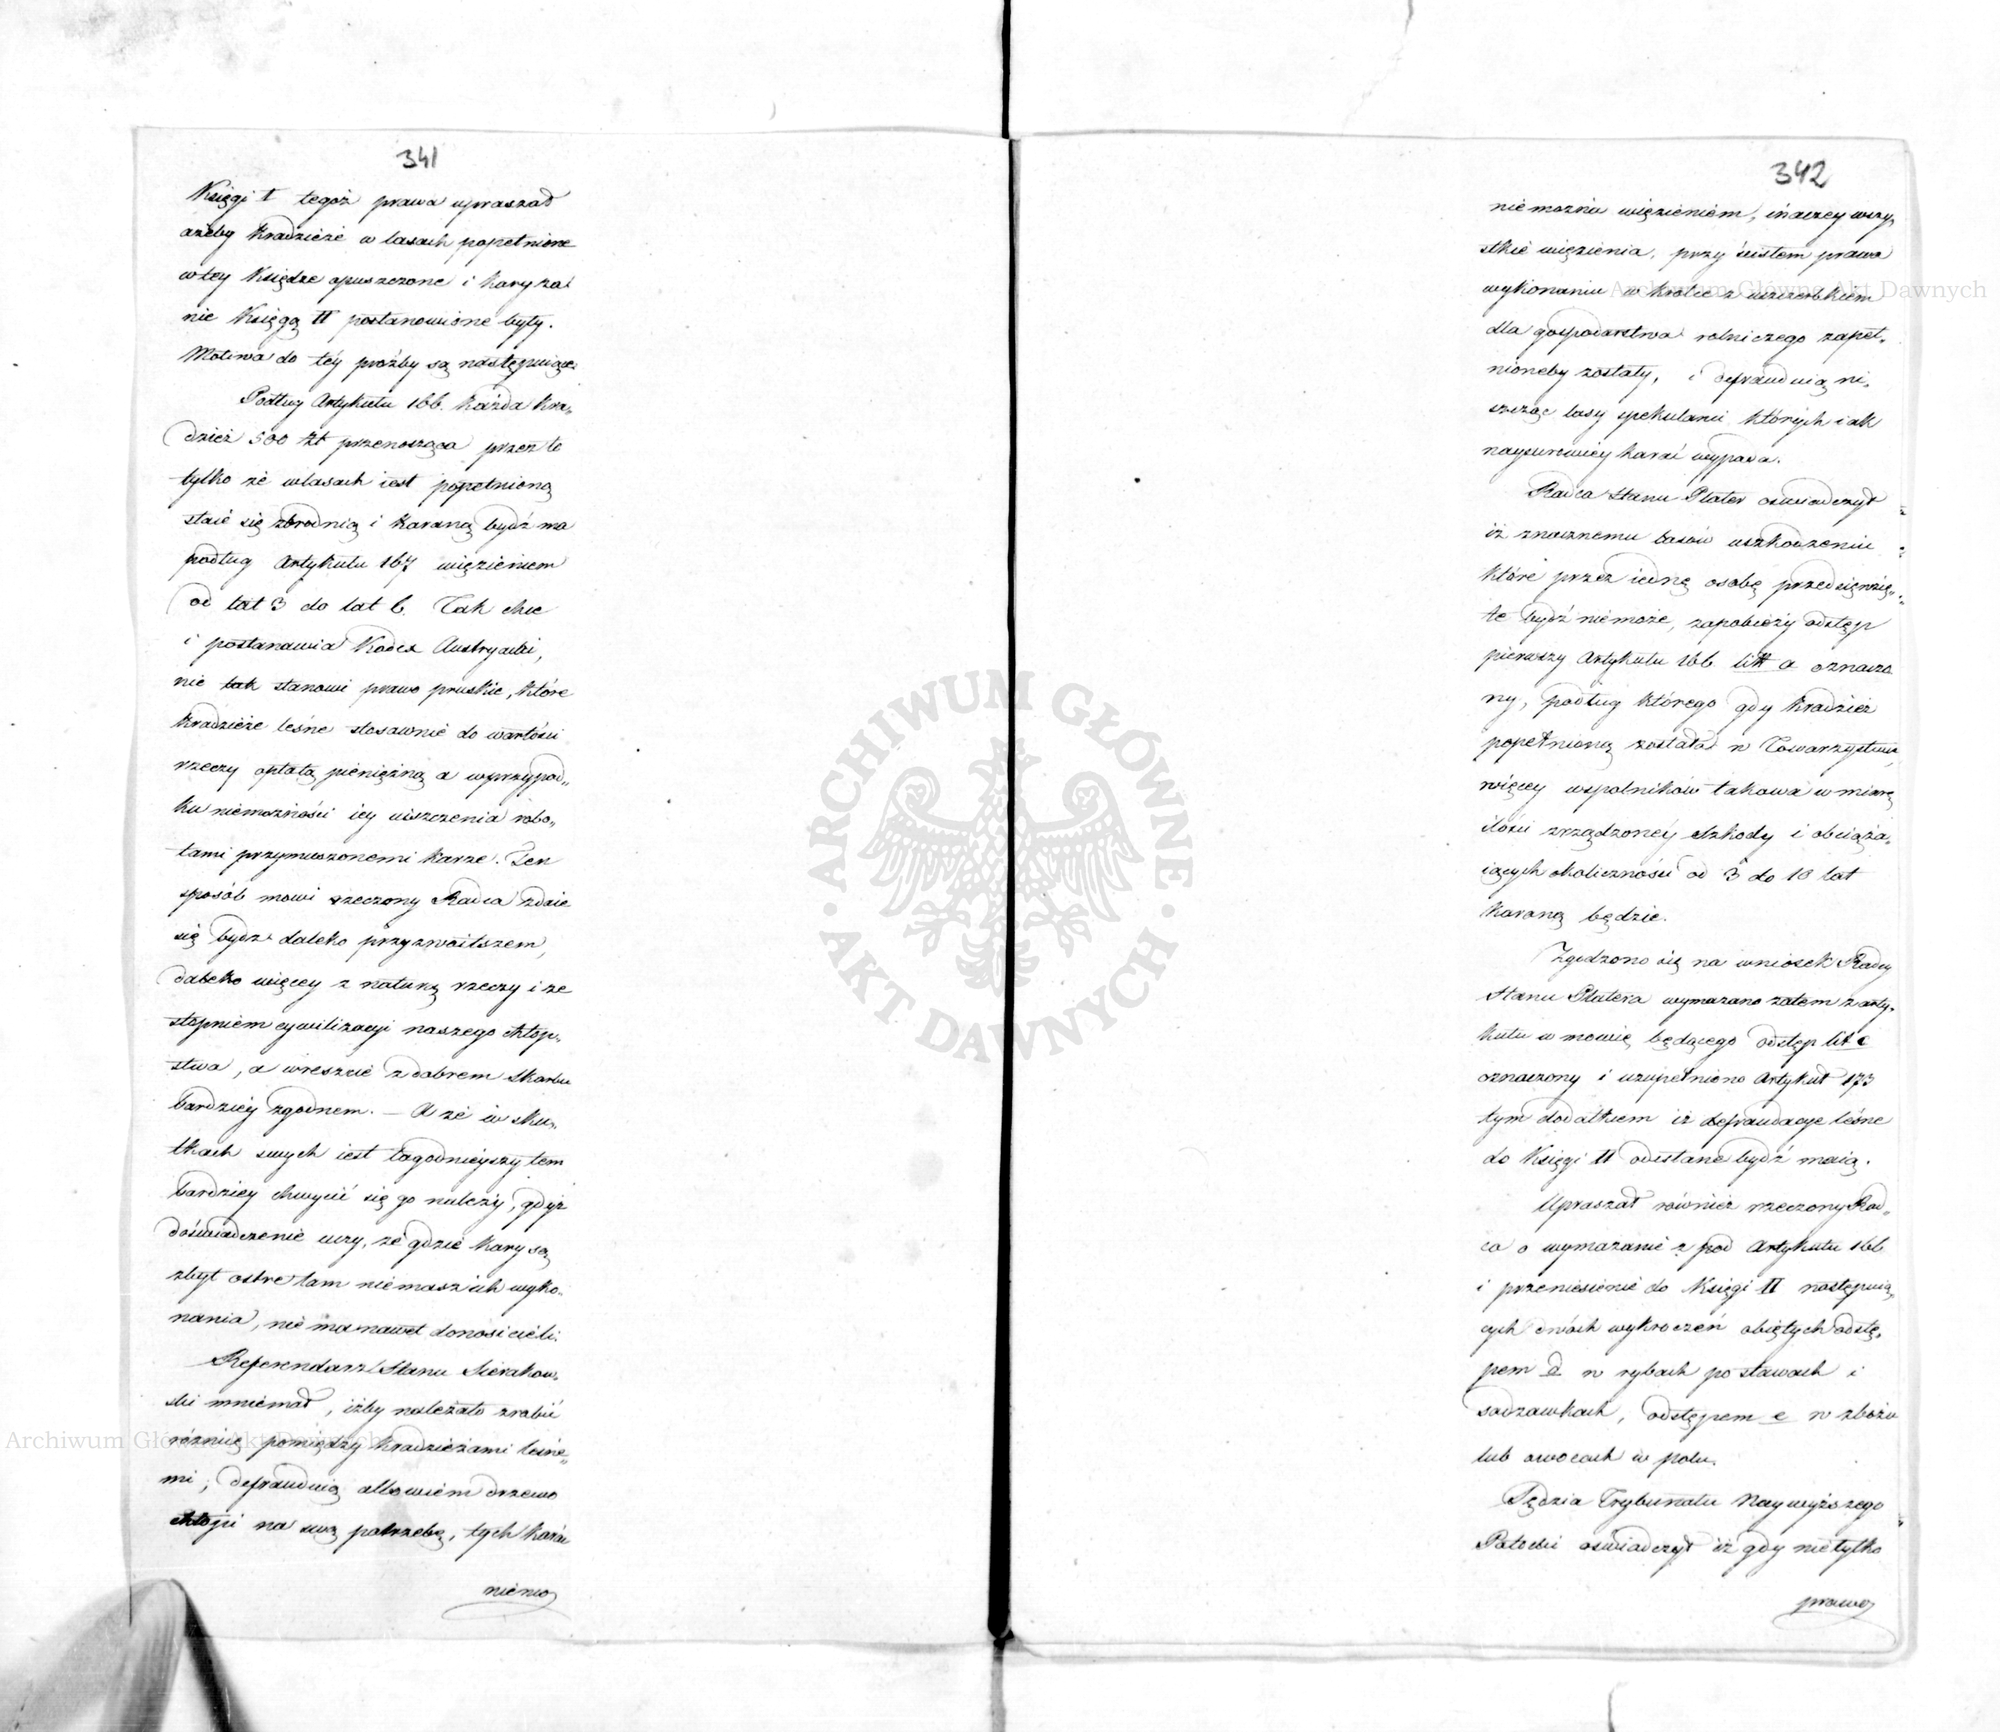 341
Księgi I tegoż prawa upraszał
ażeby kradzieże w lasach popełnione
w tey Księdze opuszczone i kary za
nie Księgą II postanowione były.
Motiwa do téy proźby są następuiące
Podług Artykułu 166. każda kra„
dzież 500 zł przenosząca przez to
tylko że w lasach iest popełnioną
staie się zbrodnią i karaną bydź ma
podług Artykułu 167 więzieniem
od lat 3 do lat 6. Tak chce
i postanawia Kodex Austryacki,
nie tak stanowi prawo pruskie, które
kradzieże leśne stosownie do wartości
rzeczy opłatą pieniężną a w przypad„
ku niemożności iey uiszczenia robo„
tami przymuszonemi karze. Ten
sposób mowi rzeczony Radca zdaie
się bydz daleko przyzwoitszem,
daleko więcey z naturą rzeczy i ze
stopniem cywilizacyi naszego chłop„
stwa, a wreszcie z dobrem skarbu
bardziéy zgodnem. — A że i w sku„
tkach swych iest łagodnieyszy tem
bardziey chwycić się go należy, gdyż
doświadczenie uczy, że gdzie kary są
zbyt ostre tam niemasz ich wyko„
nania, nie ma nawet donosicieli.
Referendarz Stanu Sierakow„
ski mniemał, iżby należało zrobić
różnicę pomiędzy kradzieżami leśne„
mi; defrauduią albowiem drzewo
chłopi na swą potrzebę, tych karać
niémo
342
niemożna więzieniem, inaczey wszy„
stkie więzienia, przy ścisłem prawa
wykonaniu w krótce z uszczerbkiem
dla gospodarstwa rolniczego zapeł„
nioneby zostały, i defrauduią ni„
szcząc lasy spekulanci których iak
naysurowiey karać wypada.
Radca Stanu Plater oświadczył
iż znacznemu lasów uszkodzeniu
które przez iedną osobę przedsięwzię„
te bydź niemoże, zapobieży odstęp
pierwszy Artykułu 166 litt a oznaczo
ny, podług którego gdy kradzież
popełnioną została w Towarzystwie
więcey wspolników takowa w miarę
ilości zrządzonéy szkody i obciąża„
iących okoliczności od 3 do 10 lat
karaną będzie.
Zgodzono się na wniosek Radcy
Stanu Platera wymazano zatem z arty„
kułu w mowie będącego odstęp lit c
oznaczony i uzupełniono Artykuł 173
tym dodatkiem iż defraudacye leśne
do Księgi II odesłane bydź maią.
Upraszał również rzeczony Rad„
ca o wymazanie z pod Artykułu 166
i przeniesienie do Księgi II następuią„
cych dwóch wykroczeń obiętych odstę„
pem d w rybach po stawach i
sadzawkach, odstępem e w zbożu
lub owocach w polu.
Sędzia Trybunału Naywyższego
Potocki oświadczył iż gdy nietylko
prawo
ARCHIWUM GŁÓWNE
· AKT DAWNYCH ·
Archiwum Główne Akt Dawnych
Archiwum Główne Akt Dawnych